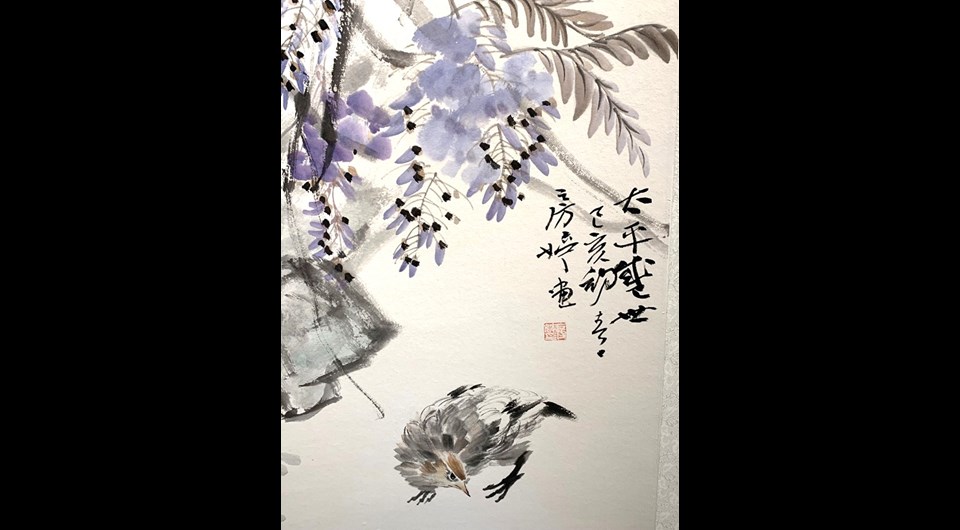 太平盛世
己亥初春
房婷画